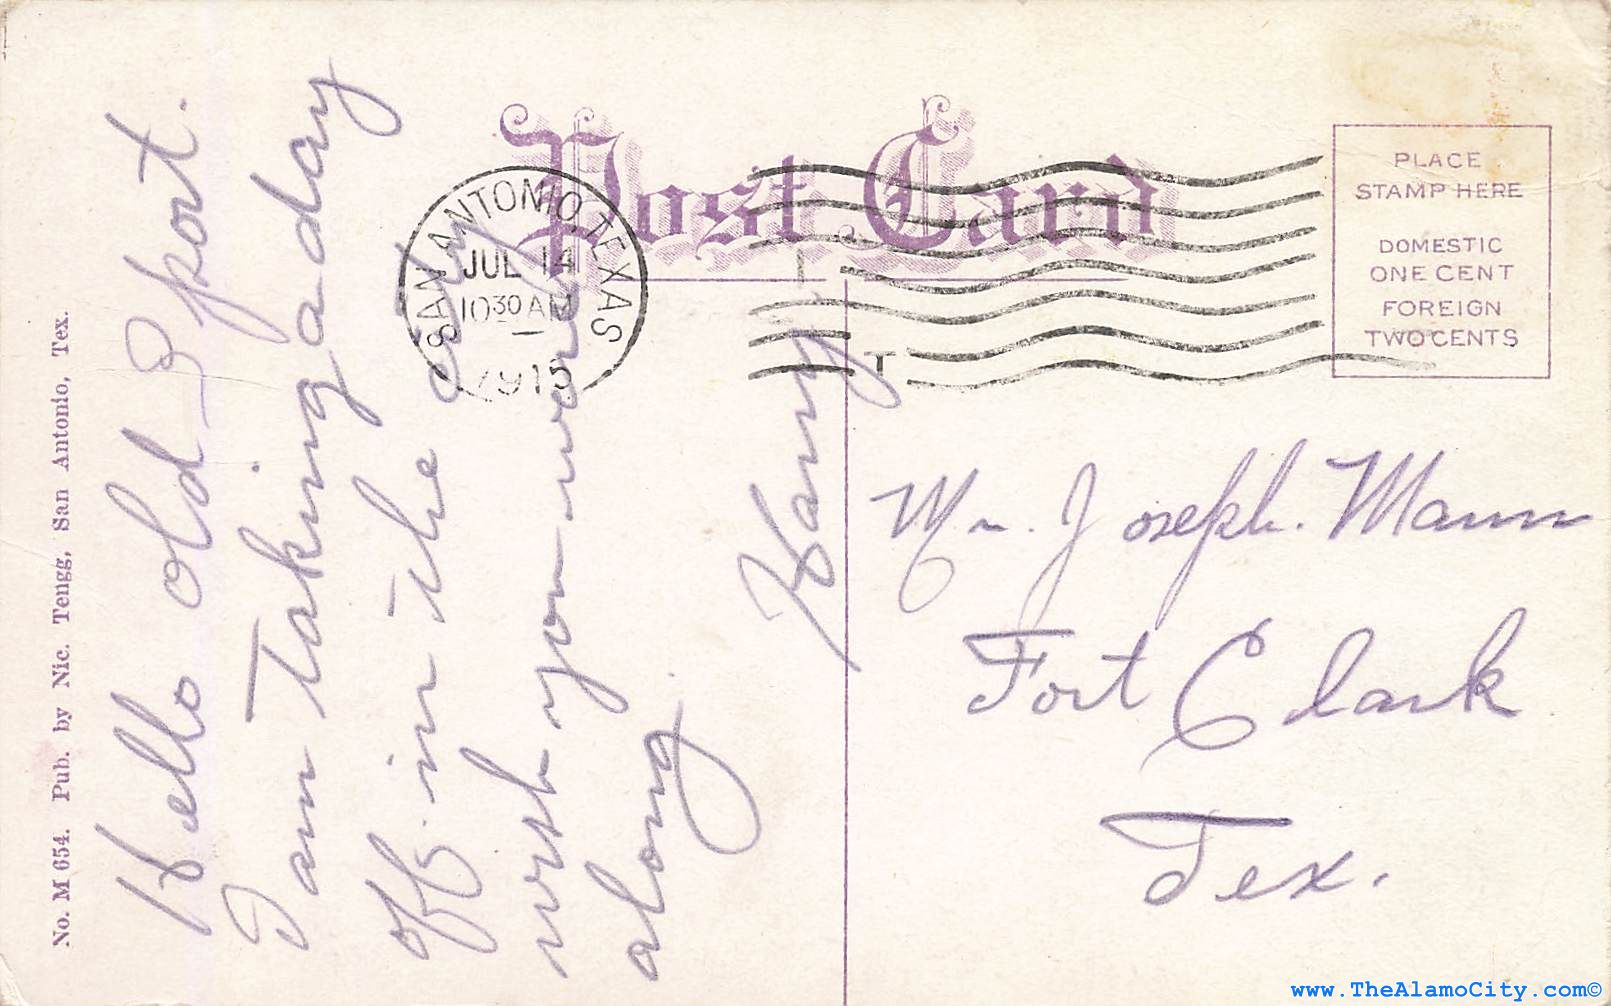 Post Card
PLACE
STAMP HERE
DOMESTIC
ONE CENT
FOREIGN
TWO CENTS
SAN ANTONIO, TEXAS
JUL 14
10 30 AM
1915
Hello Old Sport.
I am taking a day
off in the city
wish you were
along
Harry
Mr. Joseph. Mann
Fort Clark
Tex.
No. M 654. Pub. by Nic. Tengg, San Antonio, Tex.
www.TheAlamoCity.com©